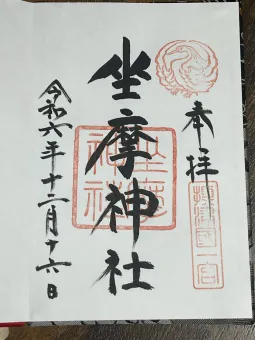 奉拝
摂津国一宮
坐摩神社
坐摩神社
令和六年十二月十六日